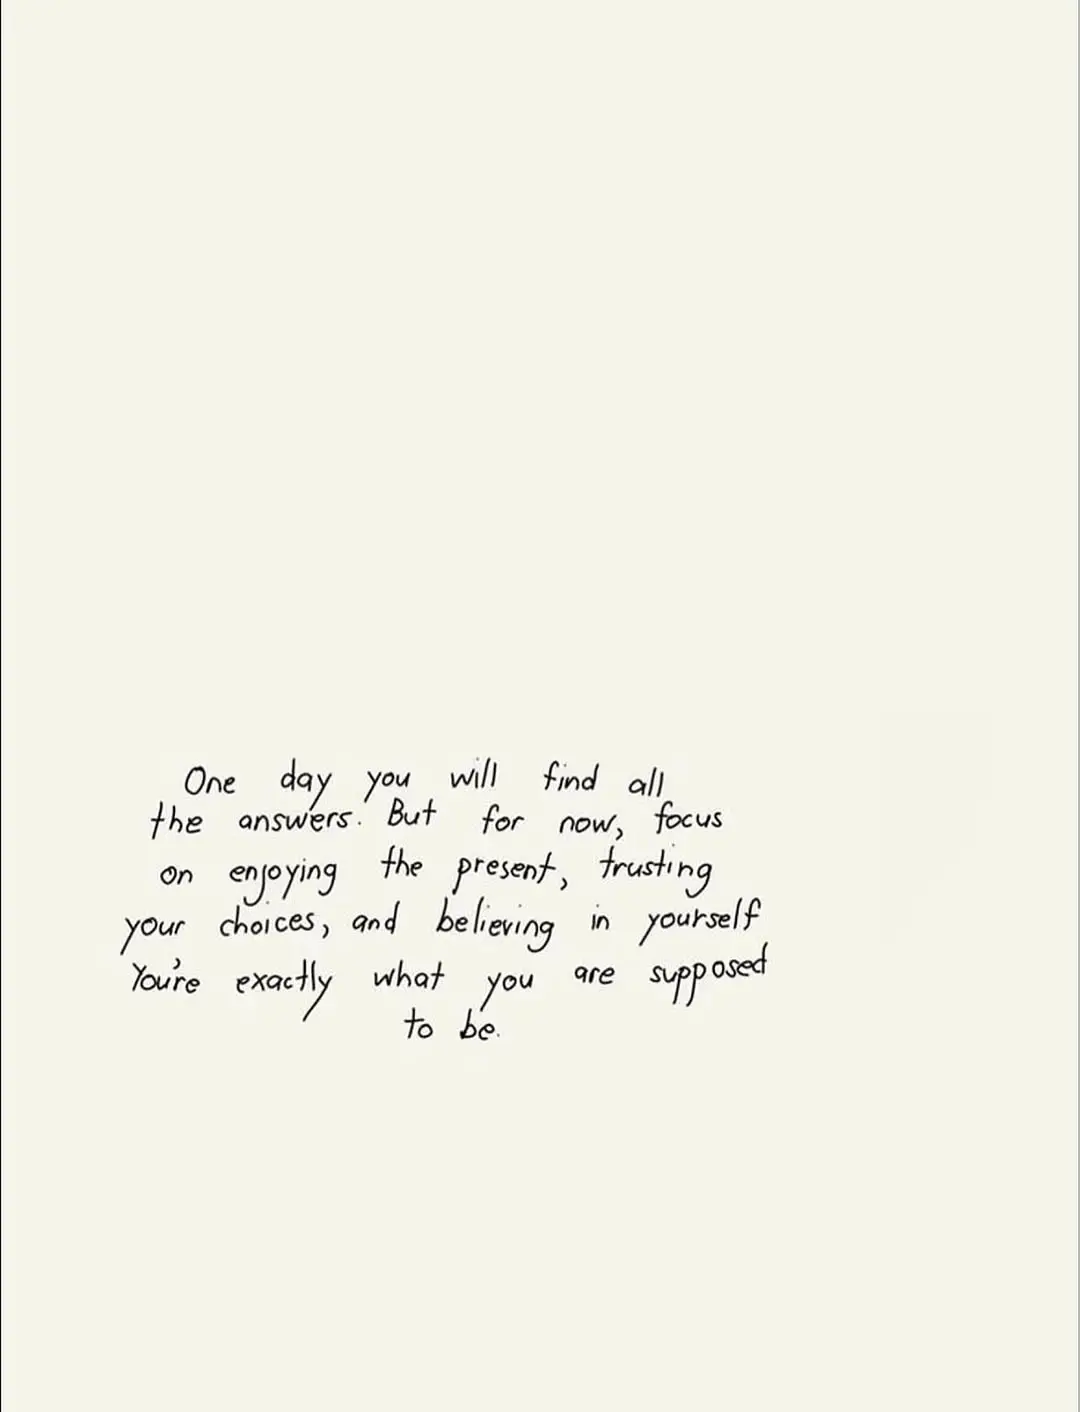 One day you will find all
the answers. But for now, focus
on enjoying the present, trusting
your choices, and believing in yourself
You're exactly what you are supposed
to be.